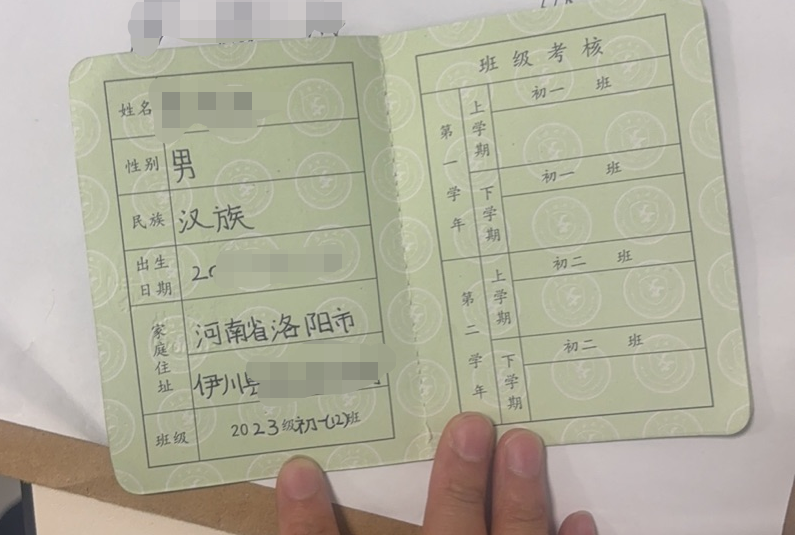 姓名
性别 男
民族 汉族
出生日期 20
家庭住址 河南省洛阳市
伊川县
班级 2023级初一(12)班
班级考核
第一学年 上学期 初一 班
下学期 初一 班
第二学年 上学期 初二 班
下学期 初二 班